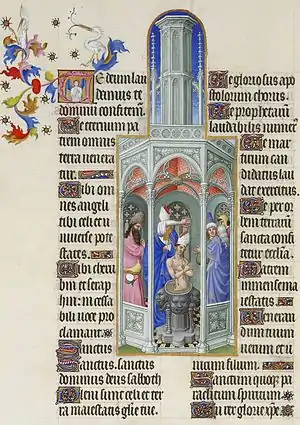 Te deum lau
damus te
dominum confitemur
Te eternum pa
trem omnis
terra venera
tur.
Tibi om
nes angeli
tibi celi et u
niuerse pote
states.
Tibi cheru
bin et seraph
im: incessa
bili uoce pro
clamant.
Sanctus
Sanctus. sanctus
dominus deus sabaoth
Pleni sunt celi et ter
ra maiestatis glorie tue.
Te gloriosus apo
stolorum chorus.
Te prophetarum
laudabilis numerus
Te mar
tirum can
didatus lau
dat exercitus.
Te per or
bem terrarum
sancta confi
tetur ecclesia.
Patrem
immense ma
iestatis.
Veneran
dum tuum
uerum et u
nicum filium.
Sanctum quoque pa
raclitum spiritum.
Tu rex glorie xpe.